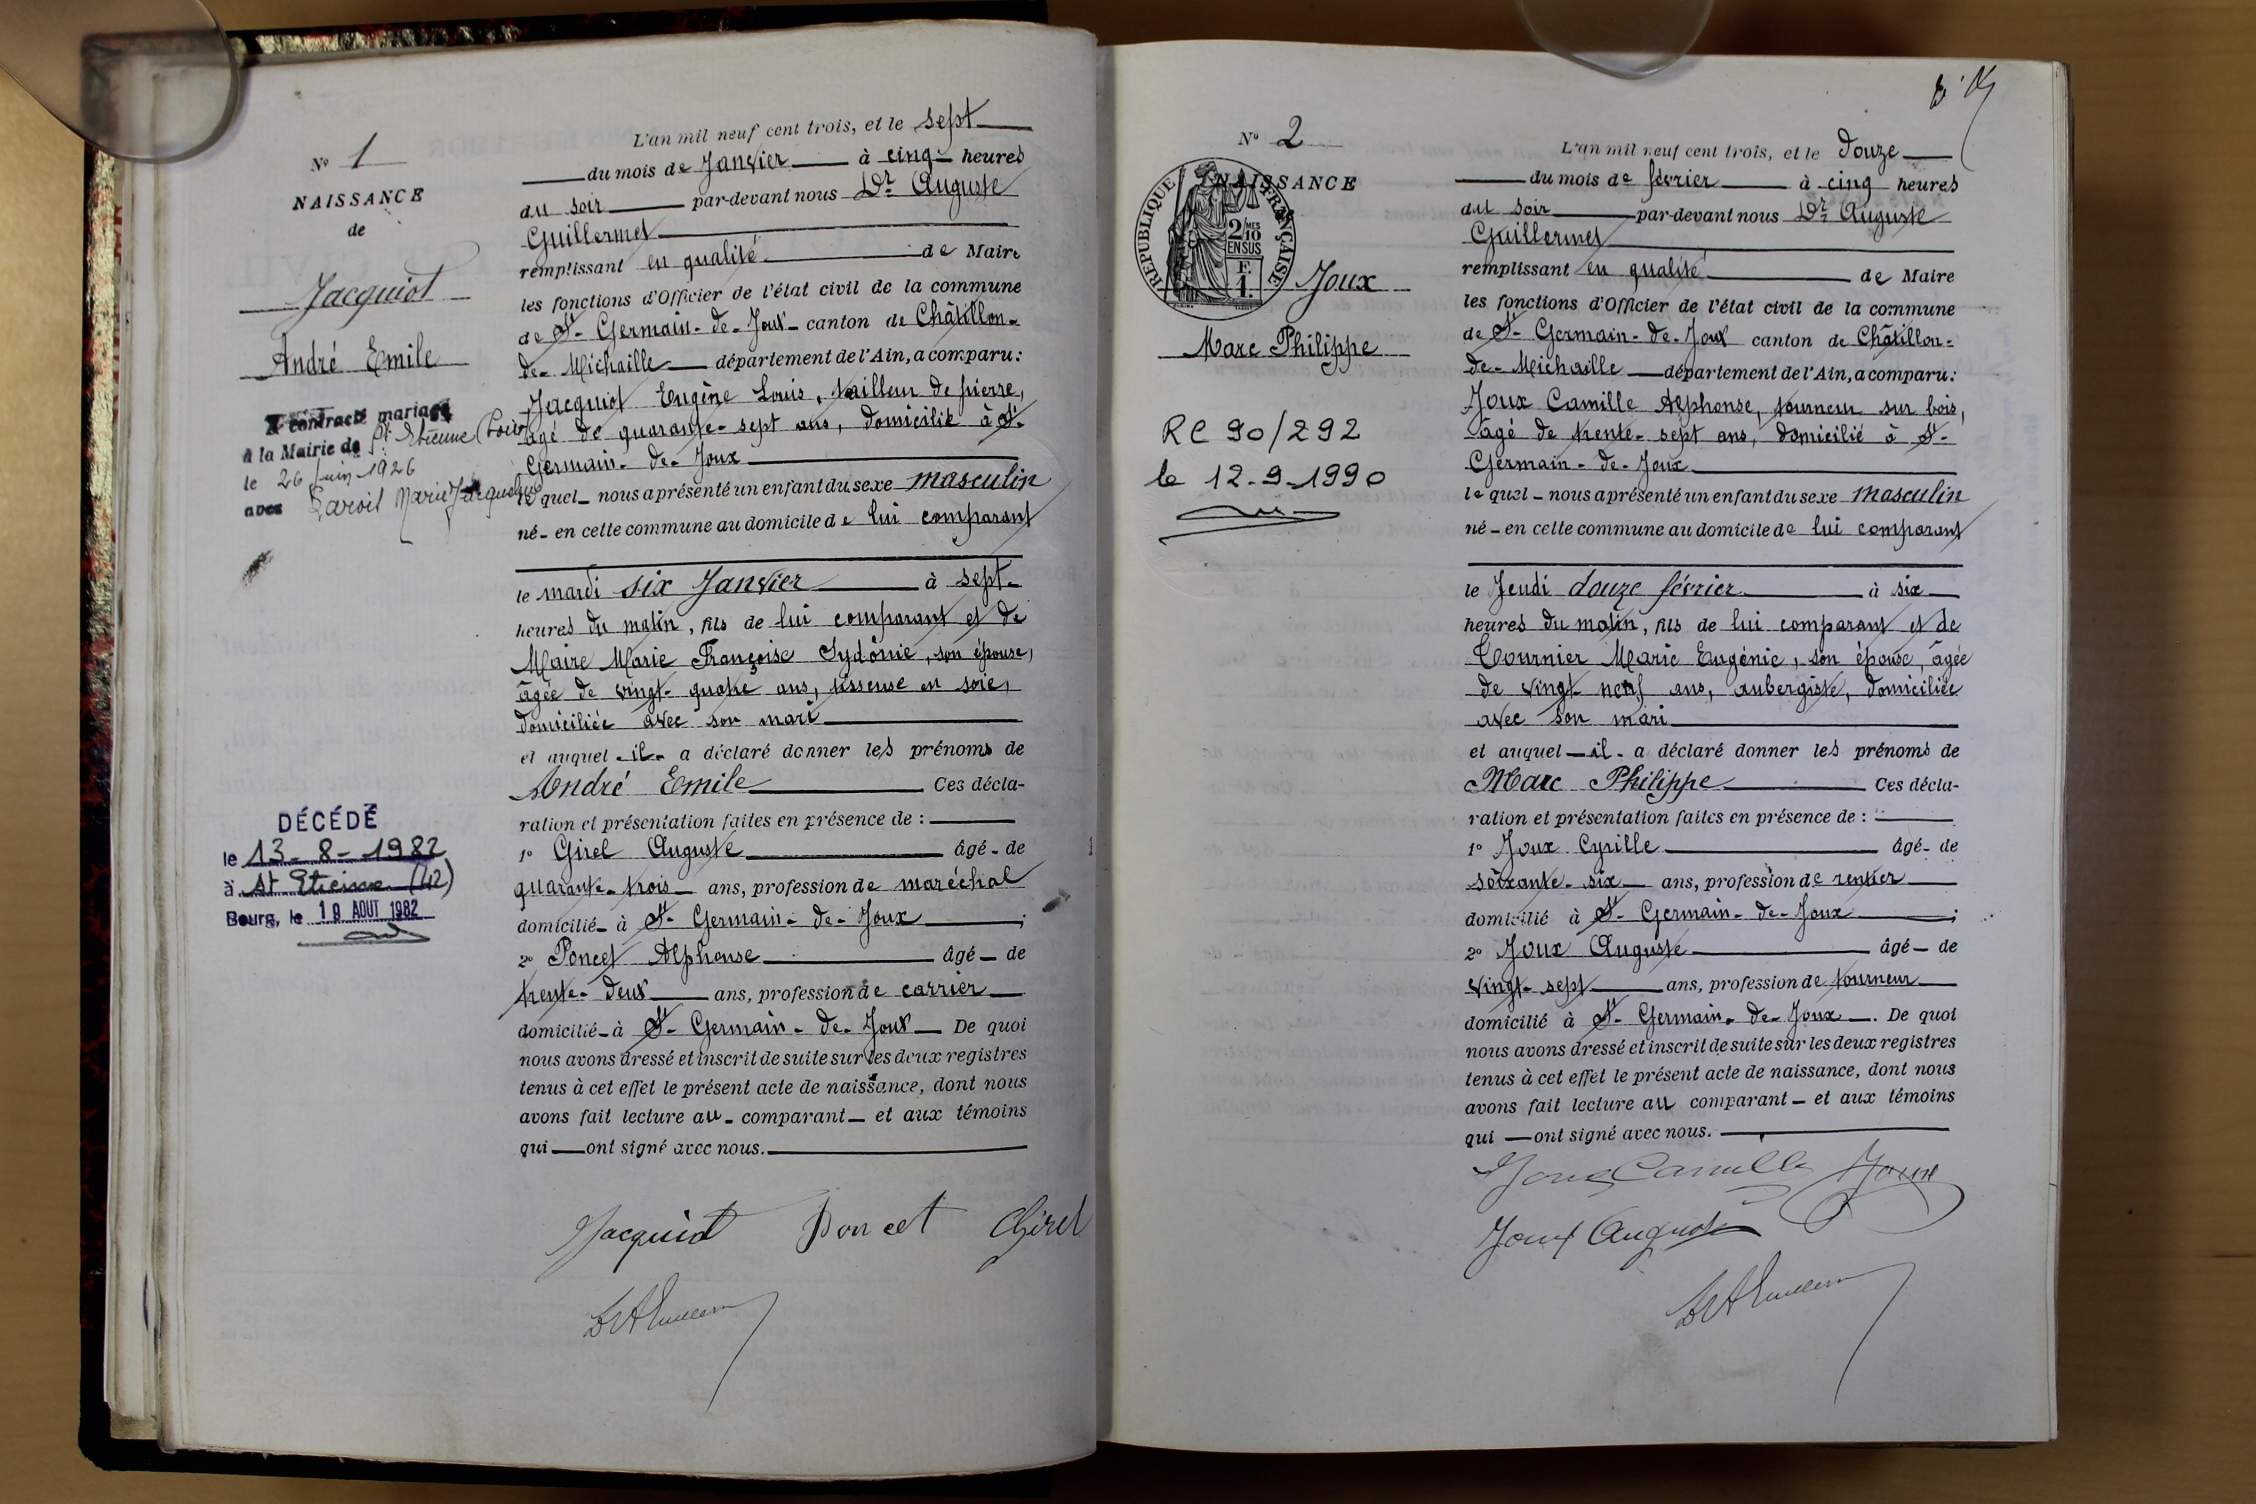 N° 1
NAISSANCE
de
Jacquiot
André Emile
A contracté mariage
à la Mairie de St Etienne (Loire
le 26 Juin 1926
avec Marie
DÉCÉDÉ
le 13-8-1982
à St Etienne (42)
Bourg, le 19 AOUT 1982
L'an mil neuf cent trois, et le sept
du mois de Janvier à cinq heures
du soir par-devant nous Dr Auguste
Guillermet
remplissant en qualité de Maire
les fonctions d'Officier de l'état civil de la commune
de St-Germain-de-Joux canton de Châtillon-
de-Michaille département de l'Ain, a comparu:
Jacquiot Eugène Louis, tailleur de pierre,
âgé de quarante-sept ans, domicilié à St-
Germain-de-Joux
lequel nous a présenté un enfant du sexe masculin
né en cette commune au domicile de lui comparant
le mardi six Janvier à sept
heures du matin, fils de lui comparant et de
Maire Marie Françoise Sydônie, son épouse,
âgée de vingt-quatre ans, tisseuse en soie,
domiciliée avec son mari
et auquel il a déclaré donner les prénoms de
André Emile Ces décla-
ration et présentation faites en présence de :
1° Girel Auguste âgé de
quarante-trois ans, profession de maréchal
domicilié à St-Germain-de-Joux ;
2° Poncet Alphonse âgé de
trente-deux ans, profession de carrier
domicilié à St-Germain-de-Joux De quoi
nous avons dressé et inscrit de suite sur les deux registres
tenus à cet effet le présent acte de naissance, dont nous
avons fait lecture au comparant et aux témoins
qui ont signé avec nous.
Jacquiot Poncet Girel
N° 2
NAISSANCE
RÉPUBLIQUE FRANÇAISE
2/10 MES
EN SUS
F.
1.
Joux
Marc Philippe
RC 90/292
le 12-9-1990
L'an mil neuf cent trois, et le douze
du mois de février à cinq heures
du soir par-devant nous Dr Auguste
Guillermet
remplissant en qualité de Maire
les fonctions d'Officier de l'état civil de la commune
de St-Germain-de-Joux canton de Châtillon-
de-Michaille département de l'Ain, a comparu:
Joux Camille Alphonse, tourneur sur bois,
âgé de trente-sept ans, domicilié à St-
Germain-de-Joux
lequel nous a présenté un enfant du sexe masculin
né en cette commune au domicile de lui comparant
le Jeudi douze février à six
heures du matin, fils de lui comparant et de
Tournier Marie Eugénie, son épouse, âgée
de vingt-neuf ans, aubergiste, domiciliée
avec son mari
et auquel il a déclaré donner les prénoms de
Marc Philippe Ces décla-
ration et présentation faites en présence de :
1° Joux Cyrille âgé de
soixante-six ans, profession de rentier
domicilié à St-Germain-de-Joux ;
2° Joux Auguste âgé de
vingt-sept ans, profession de tourneur
domicilié à St-Germain-de-Joux. De quoi
nous avons dressé et inscrit de suite sur les deux registres
tenus à cet effet le présent acte de naissance, dont nous
avons fait lecture au comparant et aux témoins
qui ont signé avec nous.
Joux Camille Joux
Joux Auguste